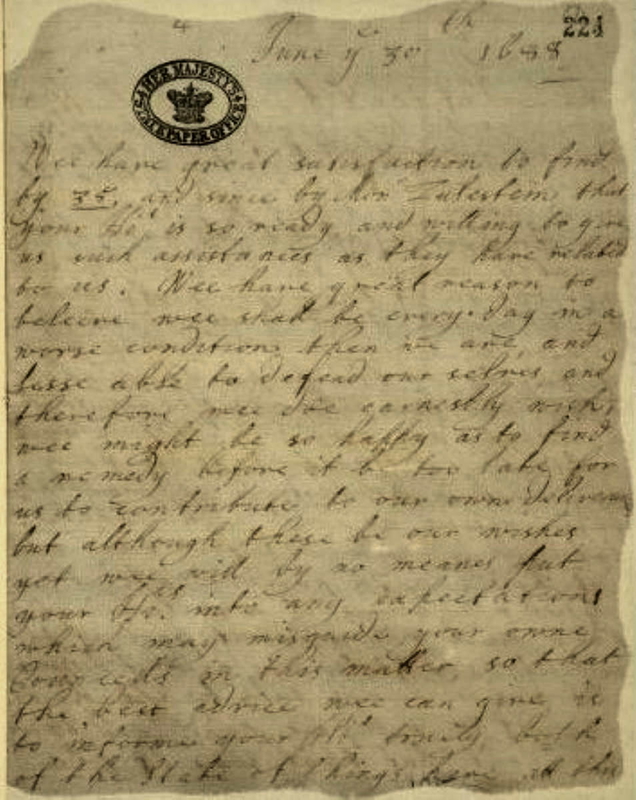 224
June ye 30th 1688
HER MAJESTY'S STATE PAPER OFFICE
Wee have great satisfaction to find
by 35, and since by Mon Zulestein that
your Hs is so ready and willing to give
us such assistances as they have related
to us. Wee have great reason to
beleeve wee shall be every day in a
worse condition then we are, and
lesse able to defend our selves and
therefore wee doe earnestly wish,
wee might be so happy as to find
a remedy before it be too late for
us to contribute to our owne deliverance
but although these be our wishes
yet wee will by no means put
your Hs. into any expectations
which may misguide your owne
Councels in this matter, so that
the best advice wee can give, is
to informe your Hs truely both
of the State of things here at this